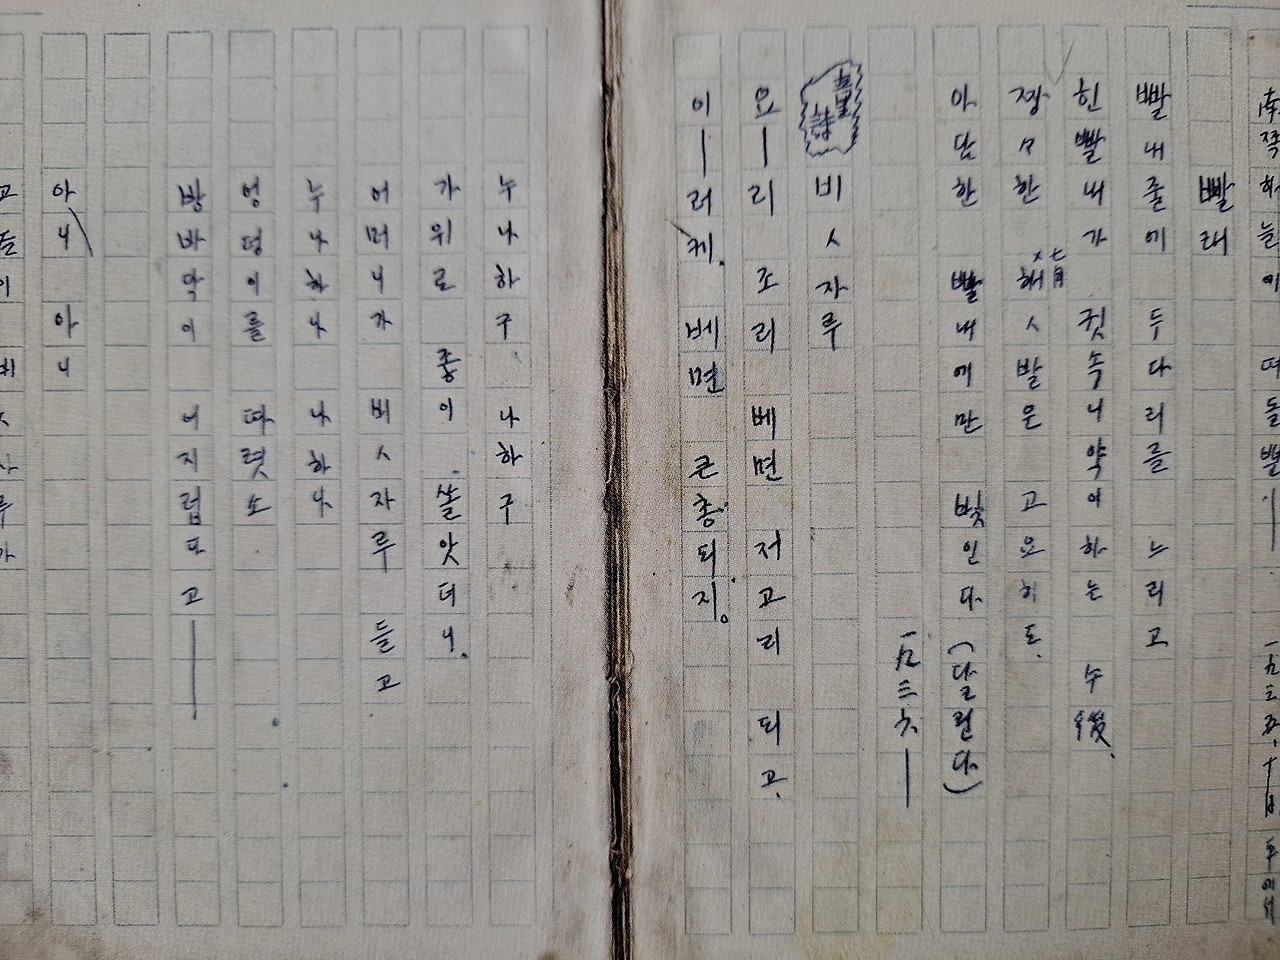 南쪽 하늘에 떠돌뿐—
빨래
빨내줄에 두다리를 느리고
힌빨내가 귓속니약이하는 午後、
쨍々한 七月 해ㅅ발은 고요히도、
아담한 빨내에만 빛인다(달린다)
一九三六—
童詩
비ㅅ자루
요—리 조리 베면 저고리 되고、
이—러케、 베면 큰총되지。
누나하구 나하구
가위로 좋이 쏠앗더니、
어머니가 비ㅅ자루 들고
누나하나 나하나
엉덩이를 따렷소
방바닥이 어지럽다고—
아니 아니